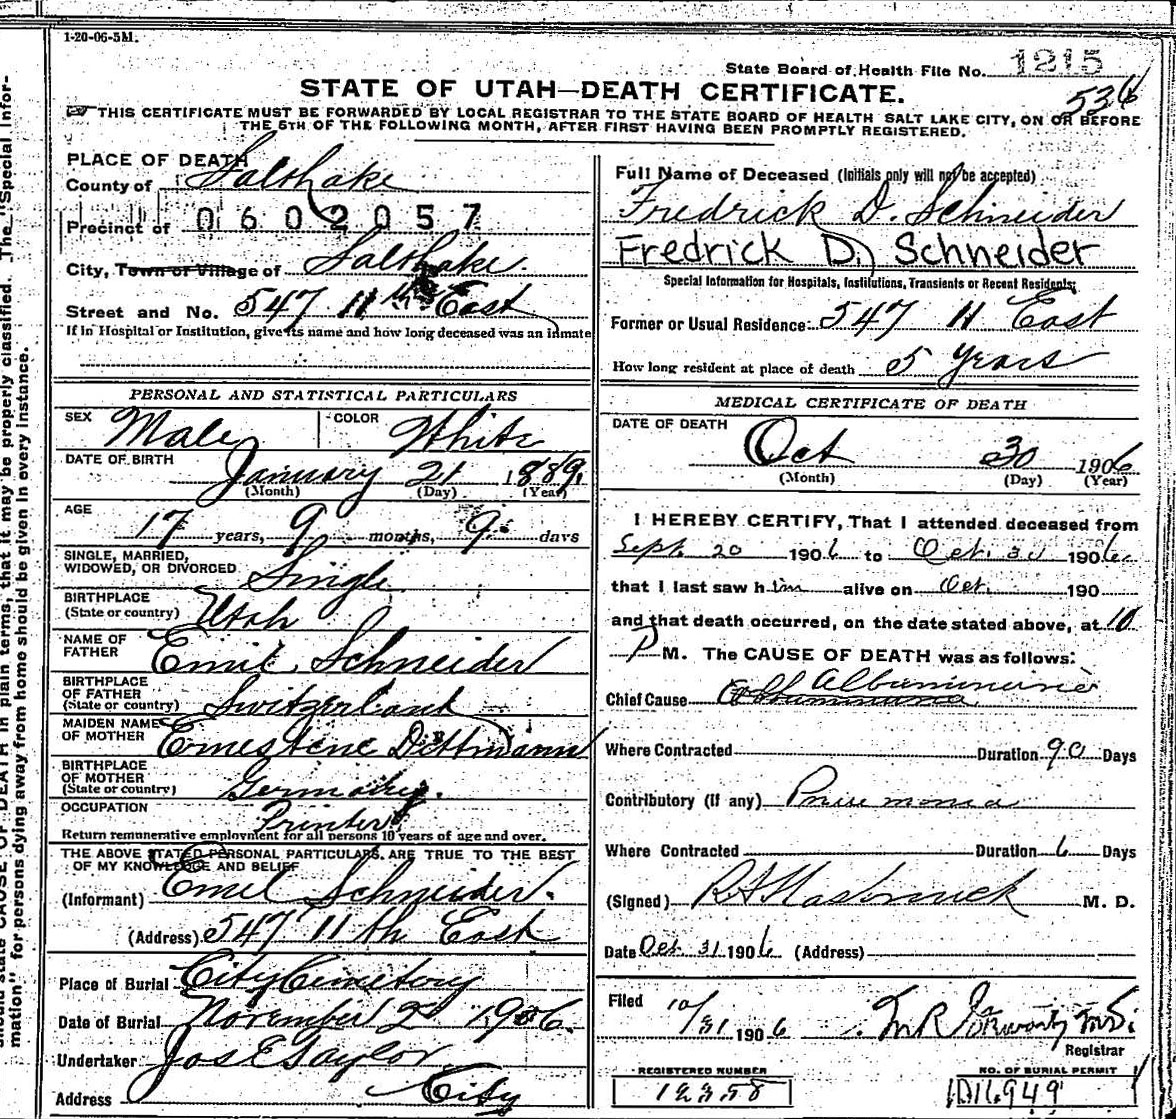 1-20-06-5M.
State Board of Health File No. 1215
STATE OF UTAH—DEATH CERTIFICATE.
536
THIS CERTIFICATE MUST BE FORWARDED BY LOCAL REGISTRAR TO THE STATE BOARD OF HEALTH SALT LAKE CITY, ON OR BEFORE
THE 5TH OF THE FOLLOWING MONTH, AFTER FIRST HAVING BEEN PROMPTLY REGISTERED.
PLACE OF DEATH
County of Salt Lake
Precinct of 0602057
City, Town or Village of Salt Lake
Street and No. 547 11th East
If in Hospital or Institution, give its name and how long deceased was an inmate
PERSONAL AND STATISTICAL PARTICULARS
SEX Male COLOR White
DATE OF BIRTH January 21 1889
(Month) (Day) (Year)
AGE 17 years, 9 months, 9 days
SINGLE, MARRIED,
WIDOWED, OR DIVORCED Single
BIRTHPLACE
(State or country) Utah
NAME OF
FATHER Emil Schneider
BIRTHPLACE
OF FATHER
(State or country) Switzerland
MAIDEN NAME
OF MOTHER Ernestene Dittmann
BIRTHPLACE
OF MOTHER
(State or country) Germany.
OCCUPATION Printer
Return remunerative employment for all persons 10 years of age and over.
THE ABOVE STATED PERSONAL PARTICULARS ARE TRUE TO THE BEST
OF MY KNOWLEDGE AND BELIEF
(Informant) Emel Schneider.
(Address) 547 11th East
Place of Burial City Cemetery
Date of Burial November 2d 1906.
Undertaker Jos E Taylor
Address City
Full Name of Deceased (Initials only will not be accepted)
Fredrick D. Schneider
Fredrick D. Schneider
Special Information for Hospitals, Institutions, Transients or Recent Residents:
Former or Usual Residence: 547 11 East
How long resident at place of death 5 Years
MEDICAL CERTIFICATE OF DEATH
DATE OF DEATH Oct 30 1906
(Month) (Day) (Year)
I HEREBY CERTIFY, That I attended deceased from
Sept. 20 1906 to Oct. 30 1906
that I last saw him alive on Oct. 190
and that death occurred, on the date stated above, at 10
P M. The CAUSE OF DEATH was as follows:
Chief Cause Albuminuria
Where Contracted Duration 90 Days
Contributory (if any) Pneumonia
Where Contracted Duration 6 Days
(Signed) R A Hasbrouck M. D.
Date Oct. 31 1906 (Address)
Filed 10/31 1906
Registrar
REGISTERED NUMBER
12358
NO. OF BURIAL PERMIT
D16949
mation" for persons dying away from home should be given in every instance.
CAUSE OF DEATH in plain terms, that it may be properly classified. The "Special Infor-